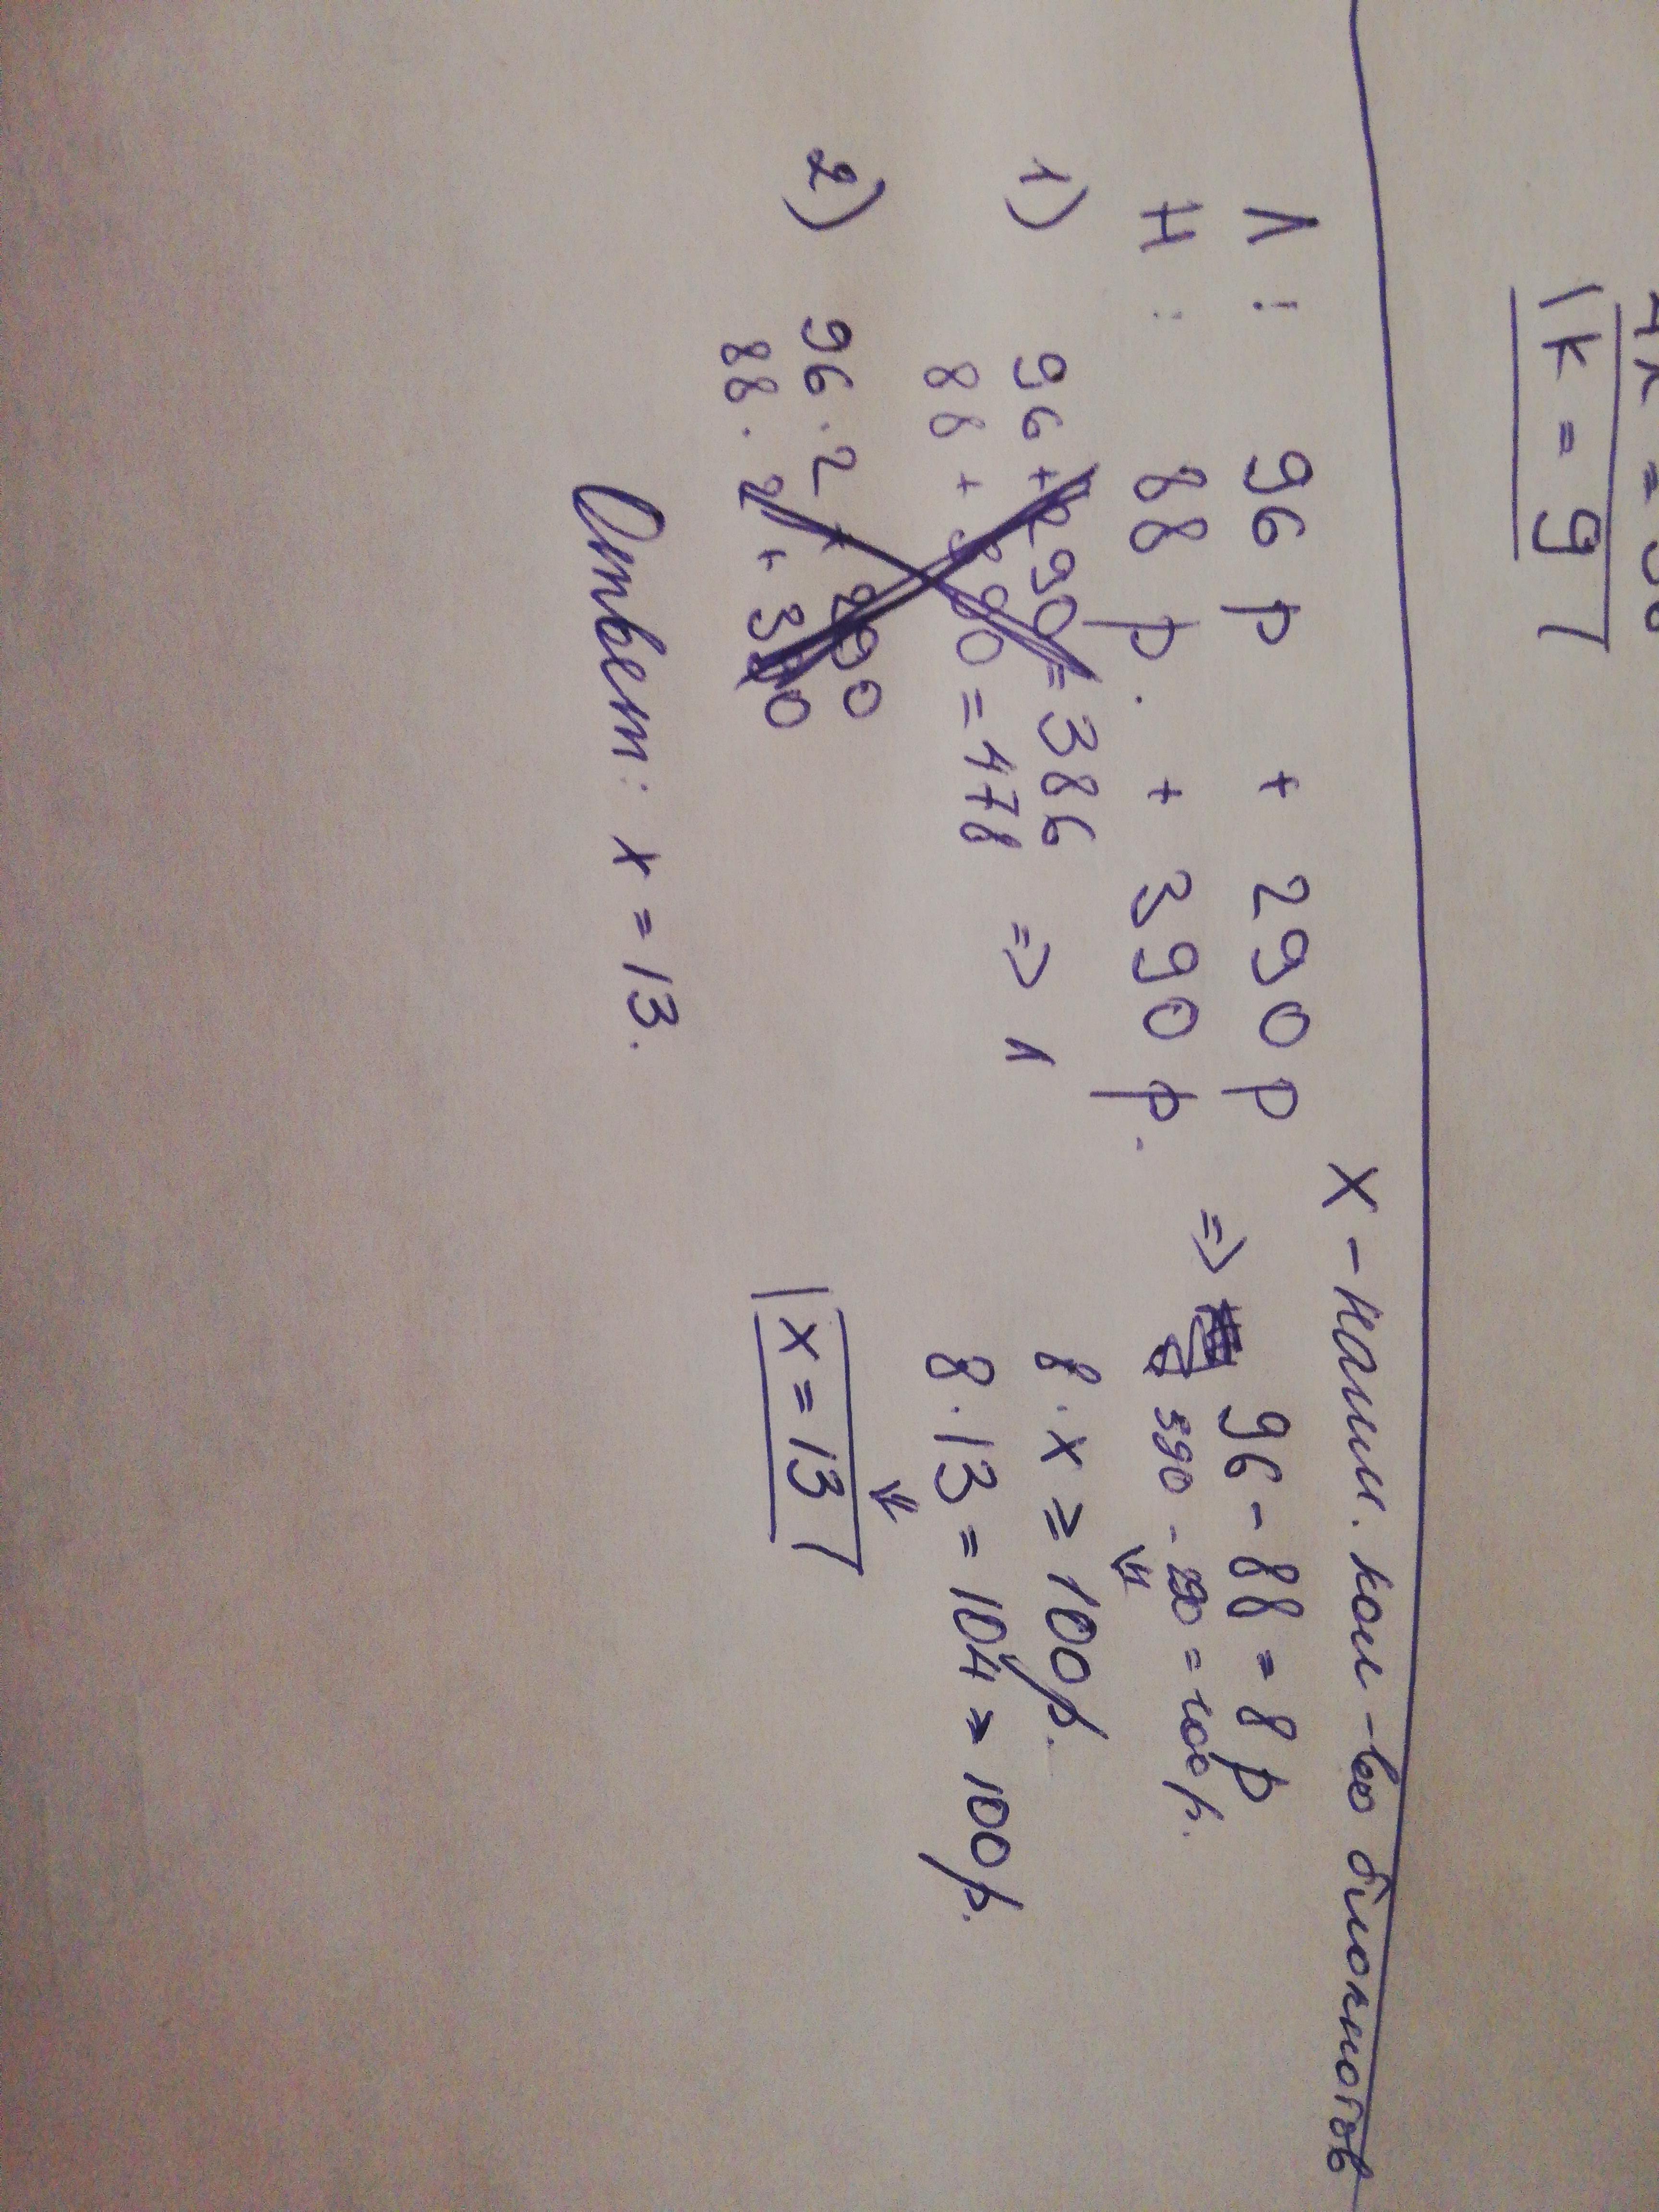 k = 9
x - наим. кол-во блокнотов
Л: 96 р + 290 р
Н: 88 р. + 390 р.
=> 96 - 88 = 8 р
390 - 290 = 100 р.
8 · x ≥ 100 р.
8 · 13 = 104 > 100 р.
x = 13
1) 96 + 290 = 386
88 + 390 = 478 => Л
2) 96 · 2 + 290
88 · 2 + 390
Ответ: x = 13.